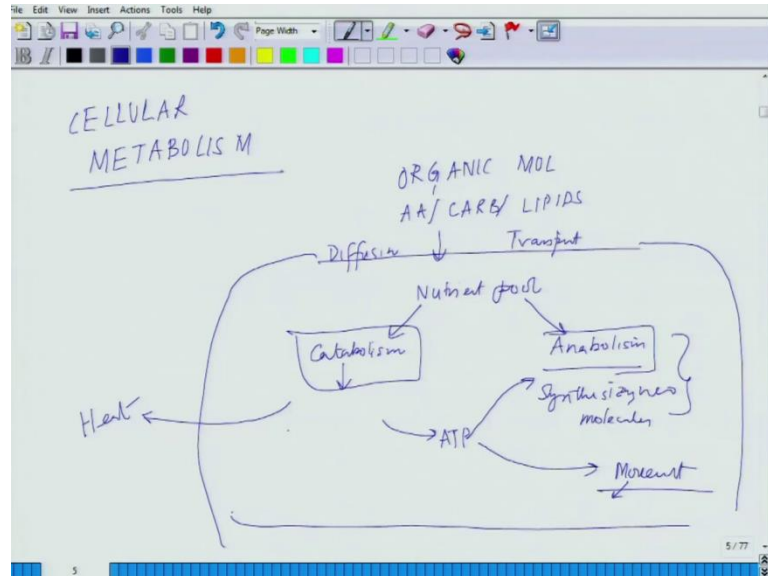 File Edit View Insert Actions Tools Help
Page Width
B I
CELLULAR
METABOLISM
ORGANIC MOL
AA/ CARB/ LIPIDS
Diffusion Transport
Nutrient pool
Catabolism
Anabolism
Synthesizing new
molecules
Heat
ATP
Movement
5/77
5